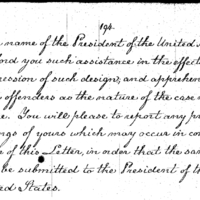 194.
name of the President of the United
ord you such assistance in the effect
ression of such design, and apprehen
offenders as the nature of the case
e. You will please to report any pr
ngs of yours which may occur in con
e of this Letter, in order that the sa
be submitted to the President of th
ed States.